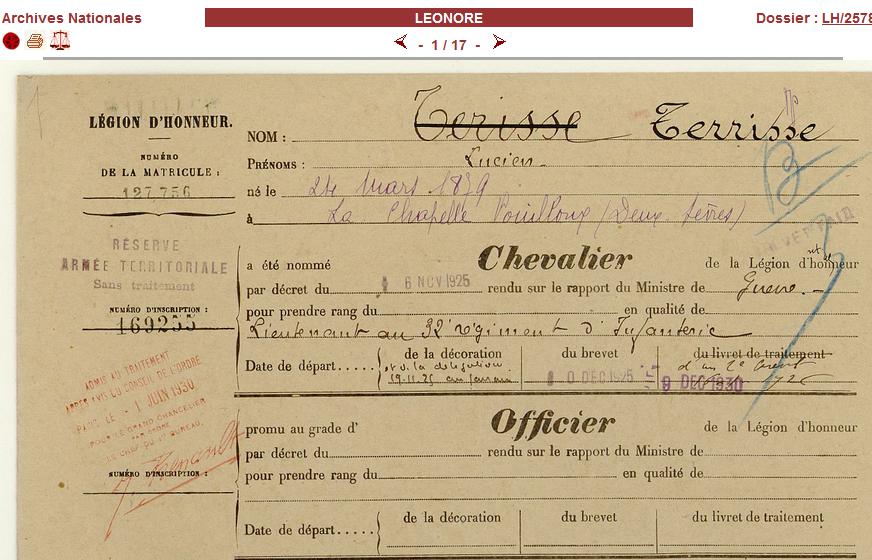 Archives Nationales
LEONORE
Dossier : LH/2578
- 1 / 17 -
LÉGION D'HONNEUR.
NUMÉRO
DE LA MATRICULE :
127.756
NOM : Terisse Terrisse
PRÉNOMS : Lucien
né le 24 mars 1879
à La Chapelle Pouilloux (Deux Sèvres)
RÉSERVE
ARMÉE TERRITORIALE
Sans traitement
NUMÉRO D'INSCRIPTION :
169255
a été nommé Chevalier de la Légion d'honneur
par décret du 6 NOV 1925 rendu sur le rapport du Ministre de Guerre.
pour prendre rang du en qualité de
Lieutenant au 32e régiment d'Infanterie
Date de départ..... de la décoration du brevet du livret de traitement
19.11.25
DEC 1925
9 DEC 1930
ADMIS AU TRAITEMENT
APRÈS AVIS DU CONSEIL DE L'ORDRE
1 JUIN 1930
POUR LE GRAND CHANCELIER
PAR ORDRE
LE CHEF DU 1er BUREAU,
NUMÉRO D'INSCRIPTION :
promu au grade d' Officier de la Légion d'honneur
par décret du rendu sur le rapport du Ministre de
pour prendre rang du en qualité de
Date de départ..... de la décoration du brevet du livret de traitement